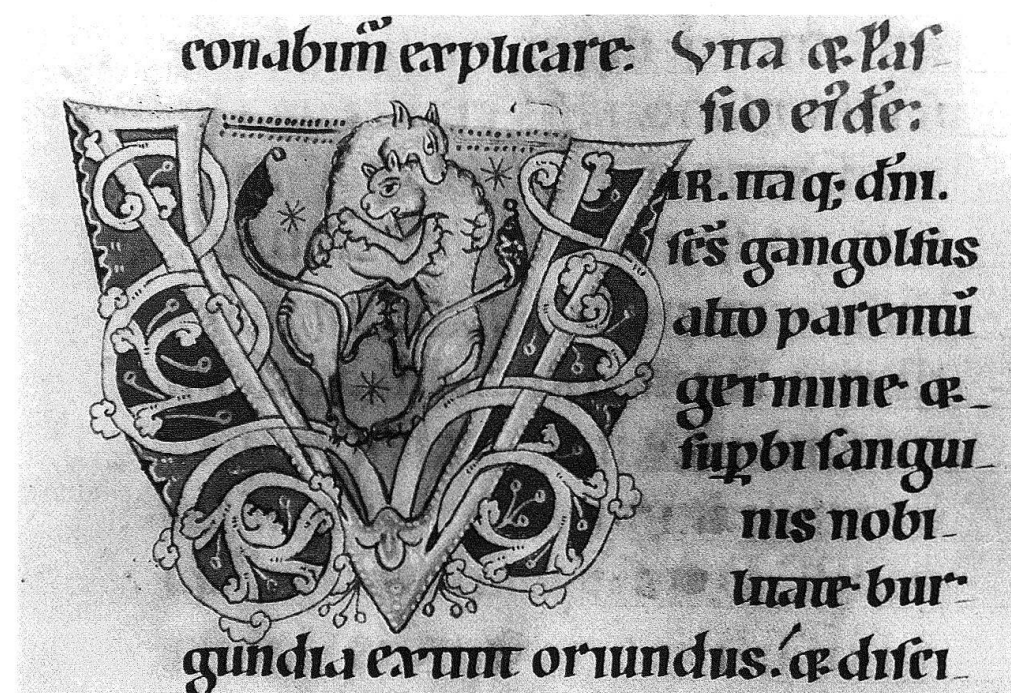 conabim̄ explicare: Vita &. Pas-
sio ei᾽dē:
VIR. itaq; dn̄i.
scs̄ gangolfus
alto parentū
germine· &.
supbi sangui-
nis nobi-
litate· bur-
gundia extitit oriundus.᾽ &. disci-